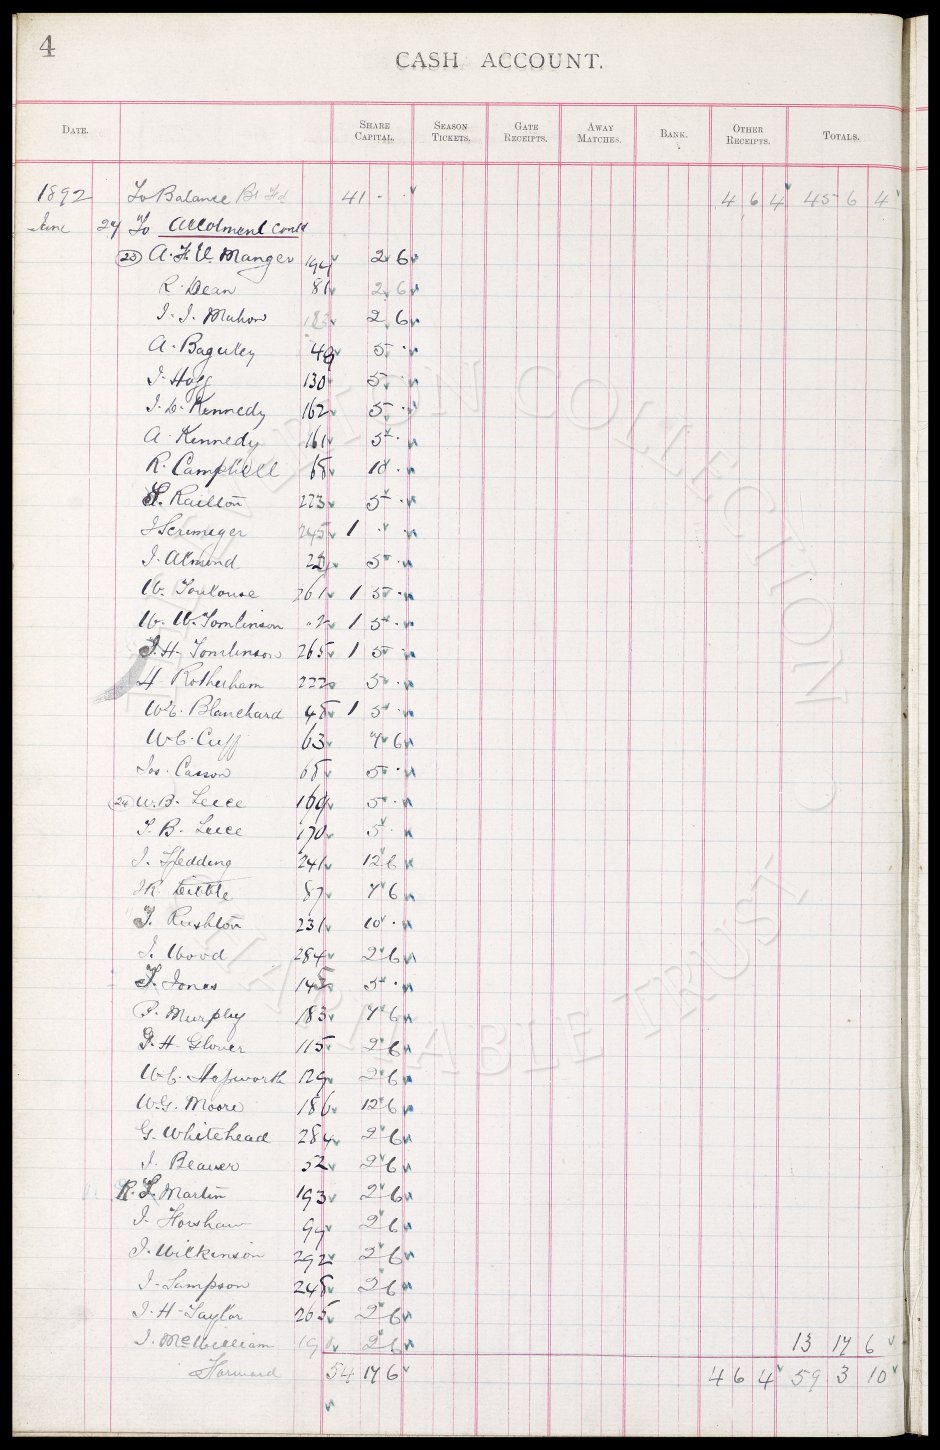 4
CASH ACCOUNT.
DATE. SHARE CAPITAL. SEASON TICKETS. GATE RECEIPTS. AWAY MATCHES. BANK. OTHER RECEIPTS. TOTALS.
1892 To Balance Bt Fd 41 - - 4 6 4 45 6 4
June 27 To Allotment Contd
(23) A. F. V. Manger 194 2 6
R. Dean 81 2 6
J. J. Mahon 182 2 6
A. Baguley 49 5 -
J. Hogg 130 5 -
J. D. Kennedy 162 5 -
A. Kennedy 161 5 -
R. Campbell 68 10 -
Railton 223 5 -
J Scrimeger 245 1 - -
J. Almond 5 -
W. Toulouse 261 1 5 -
W. W. Tomlinson 1 5 -
J. H. Tomlinson 265 1 5 -
H. Rotherham 222 5 -
Blanchard 48 1 5 -
W. C. Cuff 63 7 6
Jos. Casson 68 5 -
(24) W. B. Leece 169 5 -
T. B. Leece 170 5 -
J. 241 12 6
J K. Dibble 87 7 6
T. Rushton 231 10 -
J. Wood 284 2 6
Jones 5 -
P. Murphy 183 7 6
J. H. Glover 115 2 6
W. C. Hepworth 129 2 6
W. G. Moore 186 12 6
G. Whitehead 284 2 6
J. Beaver 52 2 6
R. Martin 193 2 6
J. Horshaw 97 2 6
J. Wilkinson 292 2 6
J. Sampson 248 2 6
J. H. Taylor 265 2 6
J. McWilliam 190 2 6 13 17 6
Forward 54 17 6 4 6 4 59 3 10
EVERTON COLLECTION
CHARITABLE TRUST